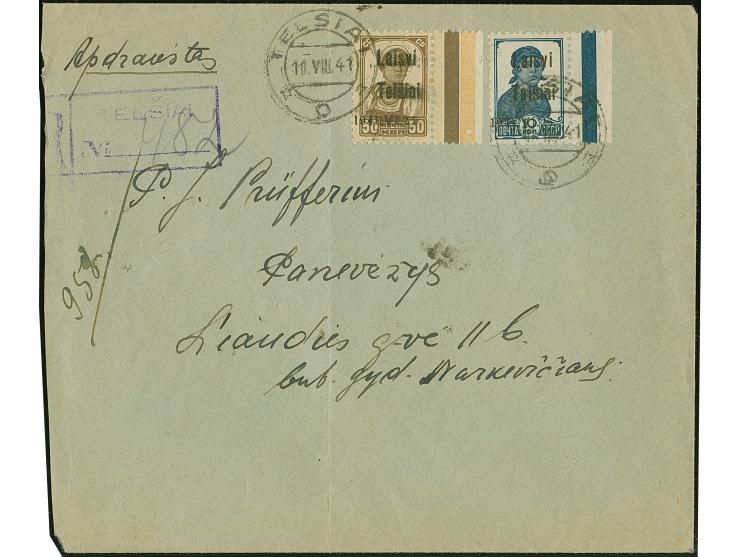 Apdraustas
TELŠIAI
№ 982
TELŠIAI
11.VIII.41
Laisvi
Telšiai
1941.VI.
50 КОП 50
Laisvi
Telšiai
10
ПОЧТА КОП СССР
P. J. Prüfferiui
Panevėžys
Liaudies gvė 11 b.
but. gyd. Narkevičiaus
958.